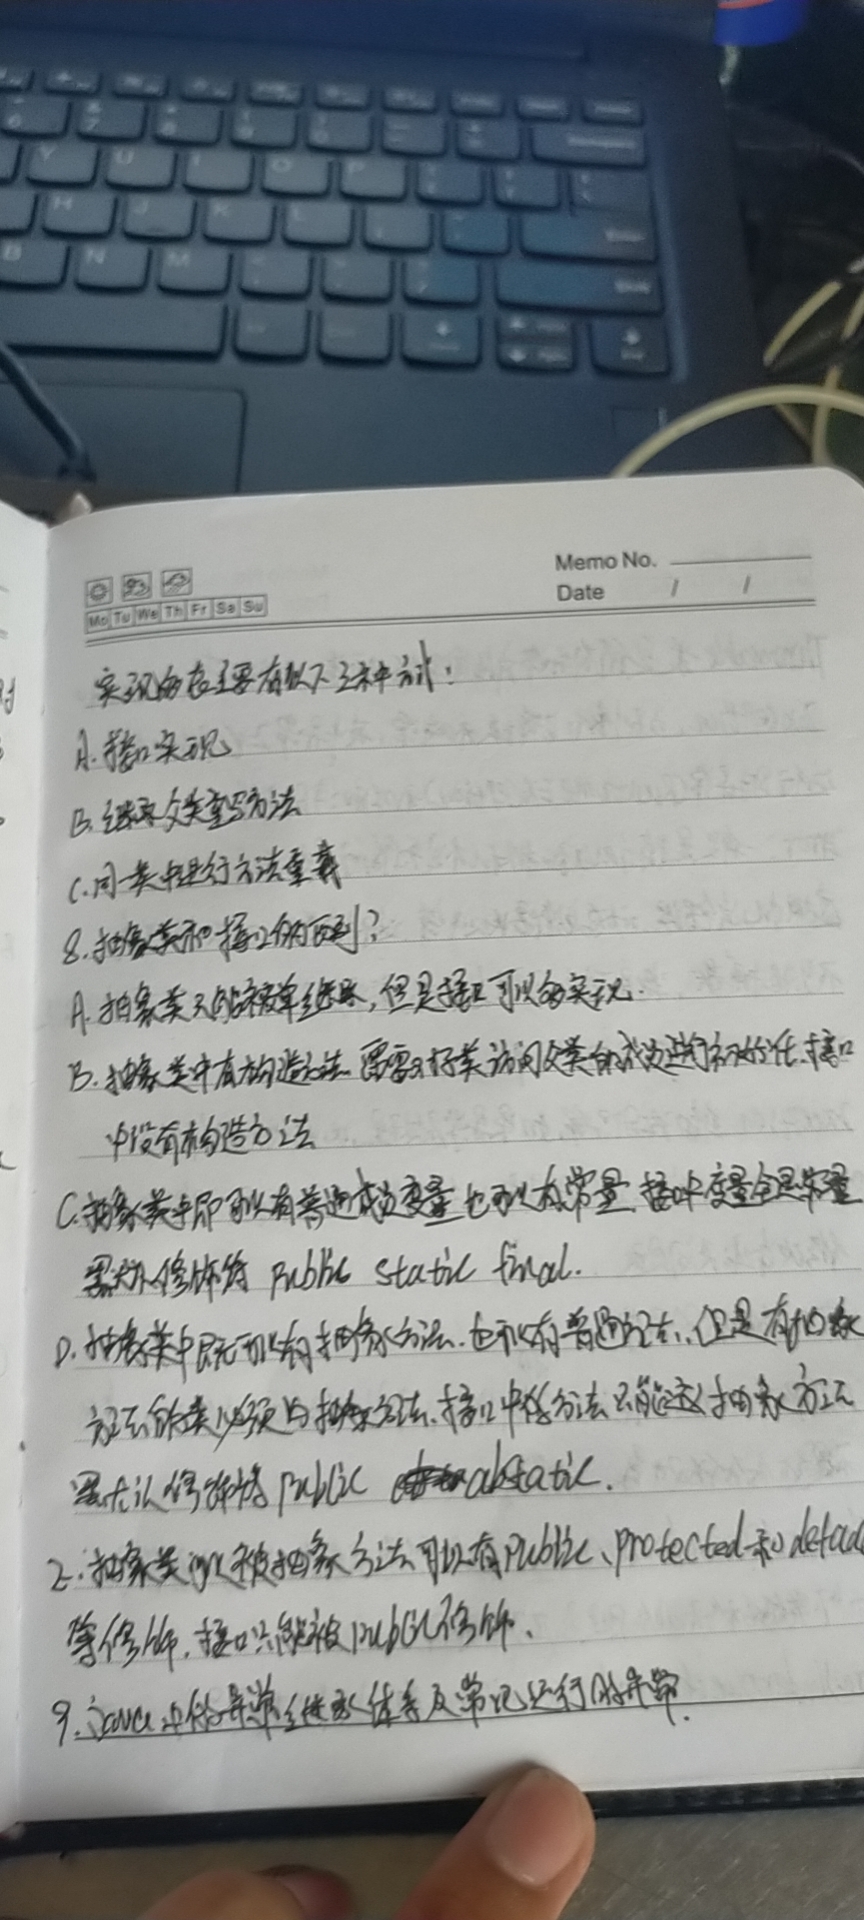 Memo No.
Date / /
Mo Tu We Th Fr Sa Su
实现多态主要有以下三种方式:
A.接口实现
B.继承父类重写方法
C.同一类中进行方法重载
8.抽象类和接口的区别?
A.抽象类只能被单继承,但是接口可以多实现.
B.抽象类中有构造方法 需要子类访问父类的成员进行初始化.接口
中没有构造方法
C.抽象类中即可以有普通成员变量也可以有常量.接口中变量全是常量
默认修饰符 public static final.
D.抽象类中既可以有抽象方法.也可以有普通方法.但是有抽象
方法的类必须为抽象方法.接口中的方法只能定义抽象方法
默认修饰符 public abstatic.
E.抽象类可以被抽象方法可以有public、protected和
等修饰.接口只能被public修饰.
9.java中的异常继承体系及常见运行时异常.